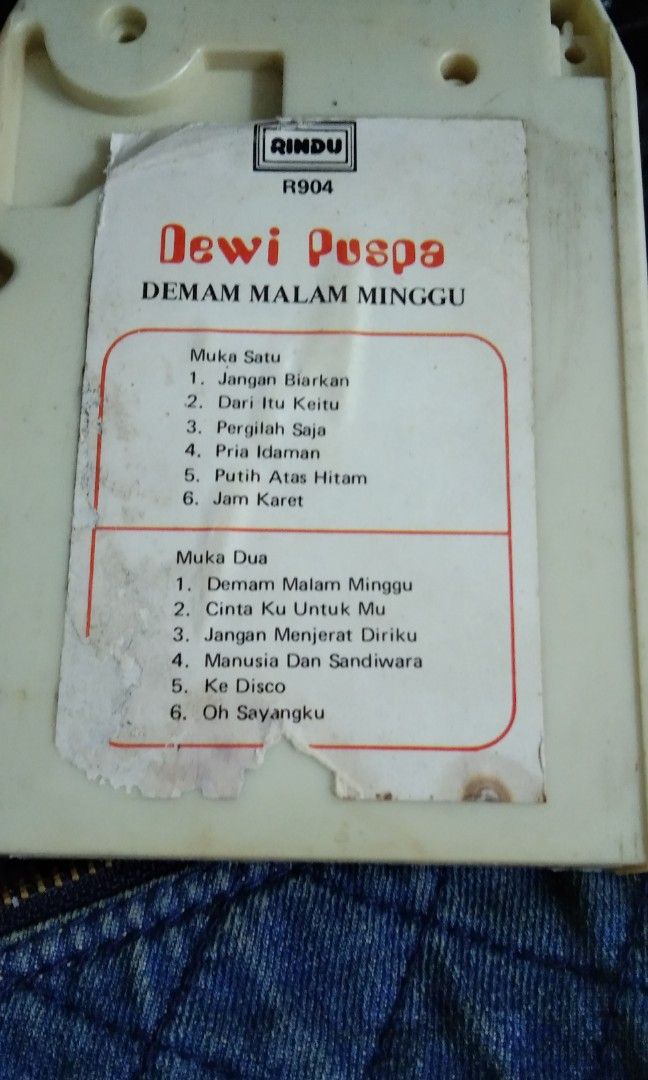 RINDU
R904
Dewi Puspa
DEMAM MALAM MINGGU
Muka Satu
1. Jangan Biarkan
2. Dari Itu Keitu
3. Pergilah Saja
4. Pria Idaman
5. Putih Atas Hitam
6. Jam Karet
Muka Dua
1. Demam Malam Minggu
2. Cinta Ku Untuk Mu
3. Jangan Menjerat Diriku
4. Manusia Dan Sandiwara
5. Ke Disco
6. Oh Sayangku